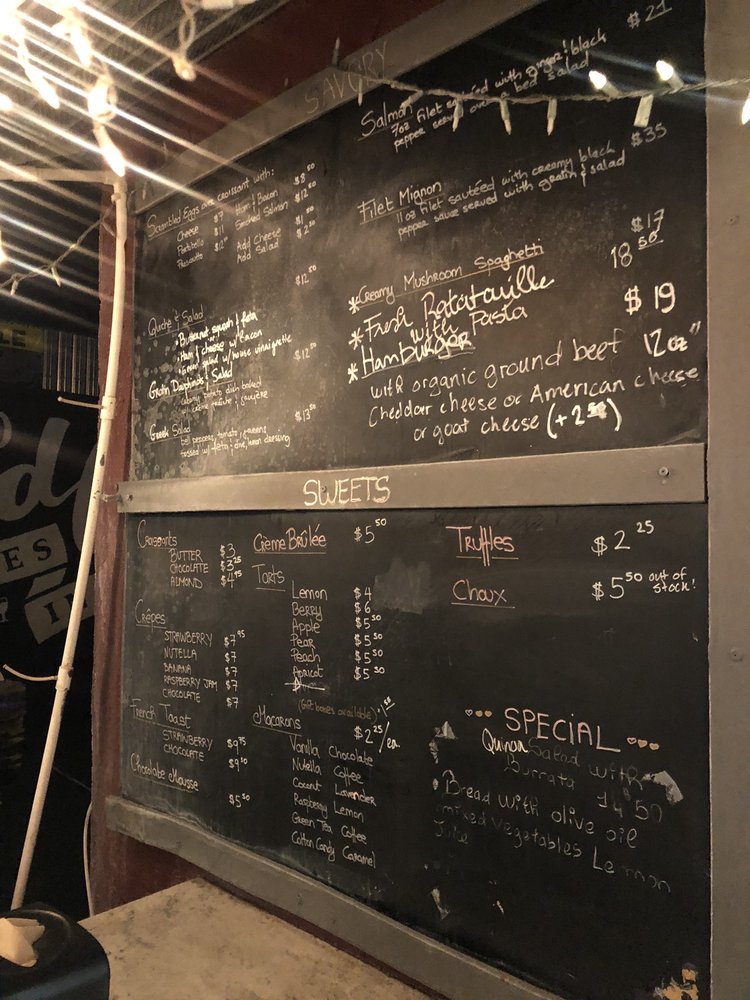 SAVORY
Scrambled Eggs and croissant with:
Cheese $7
Portobello $11
Prosciutto $12
Ham & Bacon $8 50
Smoked Salmon $12 50
Add Cheese $1 00
Add Salad $2 50
Quiche & Salad $12 50
Butternut squash & feta
Ham & cheese w/ bacon
Green salad w/ house vinaigrette
Gratin Dauphinois & Salad $12 50
creamy potato dish baked
w/ crème fraîche & gruyère
Greek Salad $13 50
bell peppers, tomato, greens
tossed w/ feta + olive, lemon dressing
Salmon $21
7oz filet sautéed with ginger! black
pepper served over a bed salad
Filet Mignon $35
11oz filet sautéed with creamy black
pepper sauce served with gratin & salad
*Creamy Mushroom Spaghetti $17
*Fresh Ratatouille 18 50
with Pasta
*Hamburger $19
with organic ground beef 12oz"
Cheddar cheese or American cheese
or goat cheese (+2 50)
SWEETS
Croissants
BUTTER $3
CHOCOLATE $3 25
ALMOND $4 95
Crêpes
STRAWBERRY $7 95
NUTELLA $7
BANANA $7
RASPBERRY JAM $7
CHOCOLATE $7
French Toast
STRAWBERRY $9 95
CHOCOLATE $9 10
Chocolate Mousse $5 50
Crème Brûlée $5 50
Tarts
Lemon $4
Berry $6
Apple $5 50
Pear $5 50
Peach $5 50
Apricot $5 50
(Gift boxes available)
Macarons $2 25/ea
Vanilla Chocolate
Nutella Coffee
Coconut Lavender
Raspberry Lemon
Green Tea Coffee
Cotton Candy Caramel
Truffles $2 25
Choux $5 50 out of stock!
SPECIAL
Quinoa Salad with
Burrata 14 50
Bread with olive oil
mixed vegetables Lemon
Juice